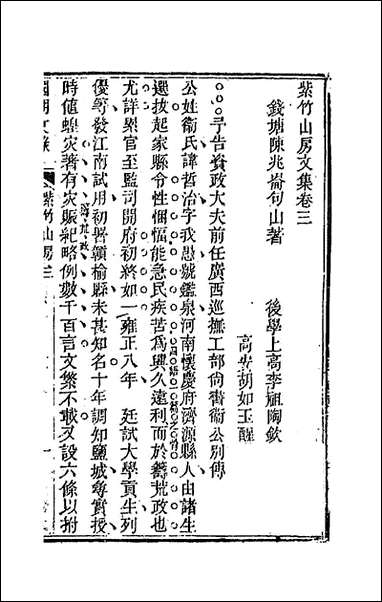 紫竹山房文集卷三
錢塘陳兆崙句山著
後學上高李祖陶欽
高安胡如玉醒
予告資政大夫前任廣西巡撫工部尙書衞公別傳
公姓衞氏諱哲治字我愚號鑑泉河南懷慶府濟源縣人由諸生
選拔起家縣令性悃愊能急民疾苦爲興久遠利而於籌荒政也
尤詳累官至監司開府初終如一雍正八年 廷試大學貢生列
優等發江南試用初署贛榆縣未甚知名十年調知鹽城尋實授
時値蝗灾著有灾賑紀略例數千百言文繁不載又設六條以拊
國朝文錄
紫竹山房三